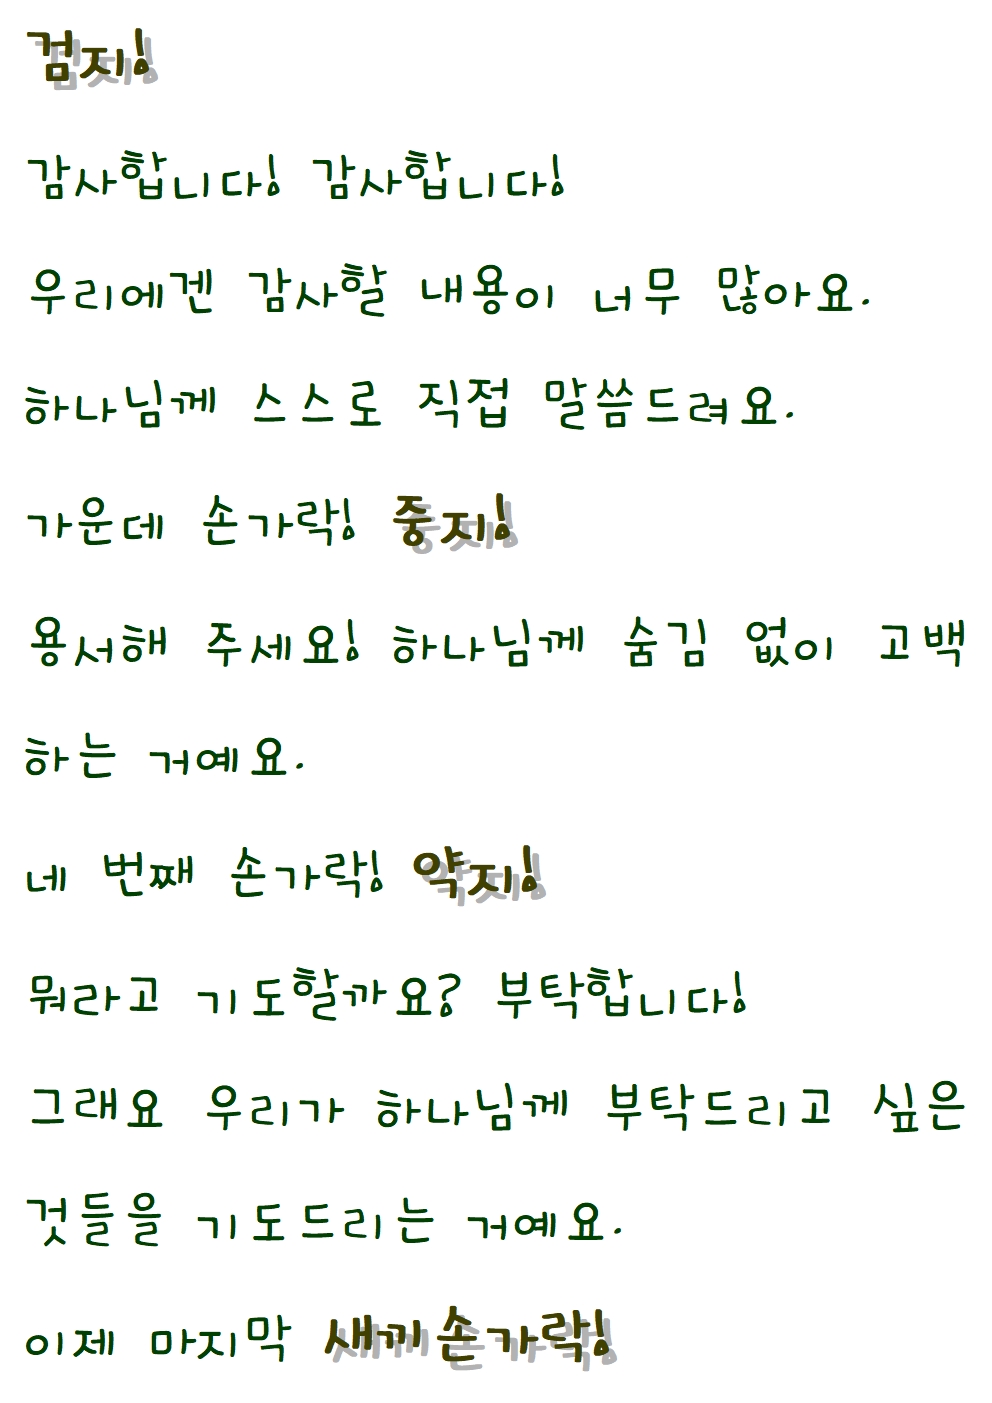 검지!
감사합니다! 감사합니다!
우리에겐 감사할 내용이 너무 많아요.
하나님께 스스로 직접 말씀드려요.
가운데 손가락! 중지!
용서해 주세요! 하나님께 숨김 없이 고백
하는 거예요.
네 번째 손가락! 약지!
뭐라고 기도할까요? 부탁합니다!
그래요 우리가 하나님께 부탁드리고 싶은
것들을 기도드리는 거예요.
이제 마지막 새끼손가락!